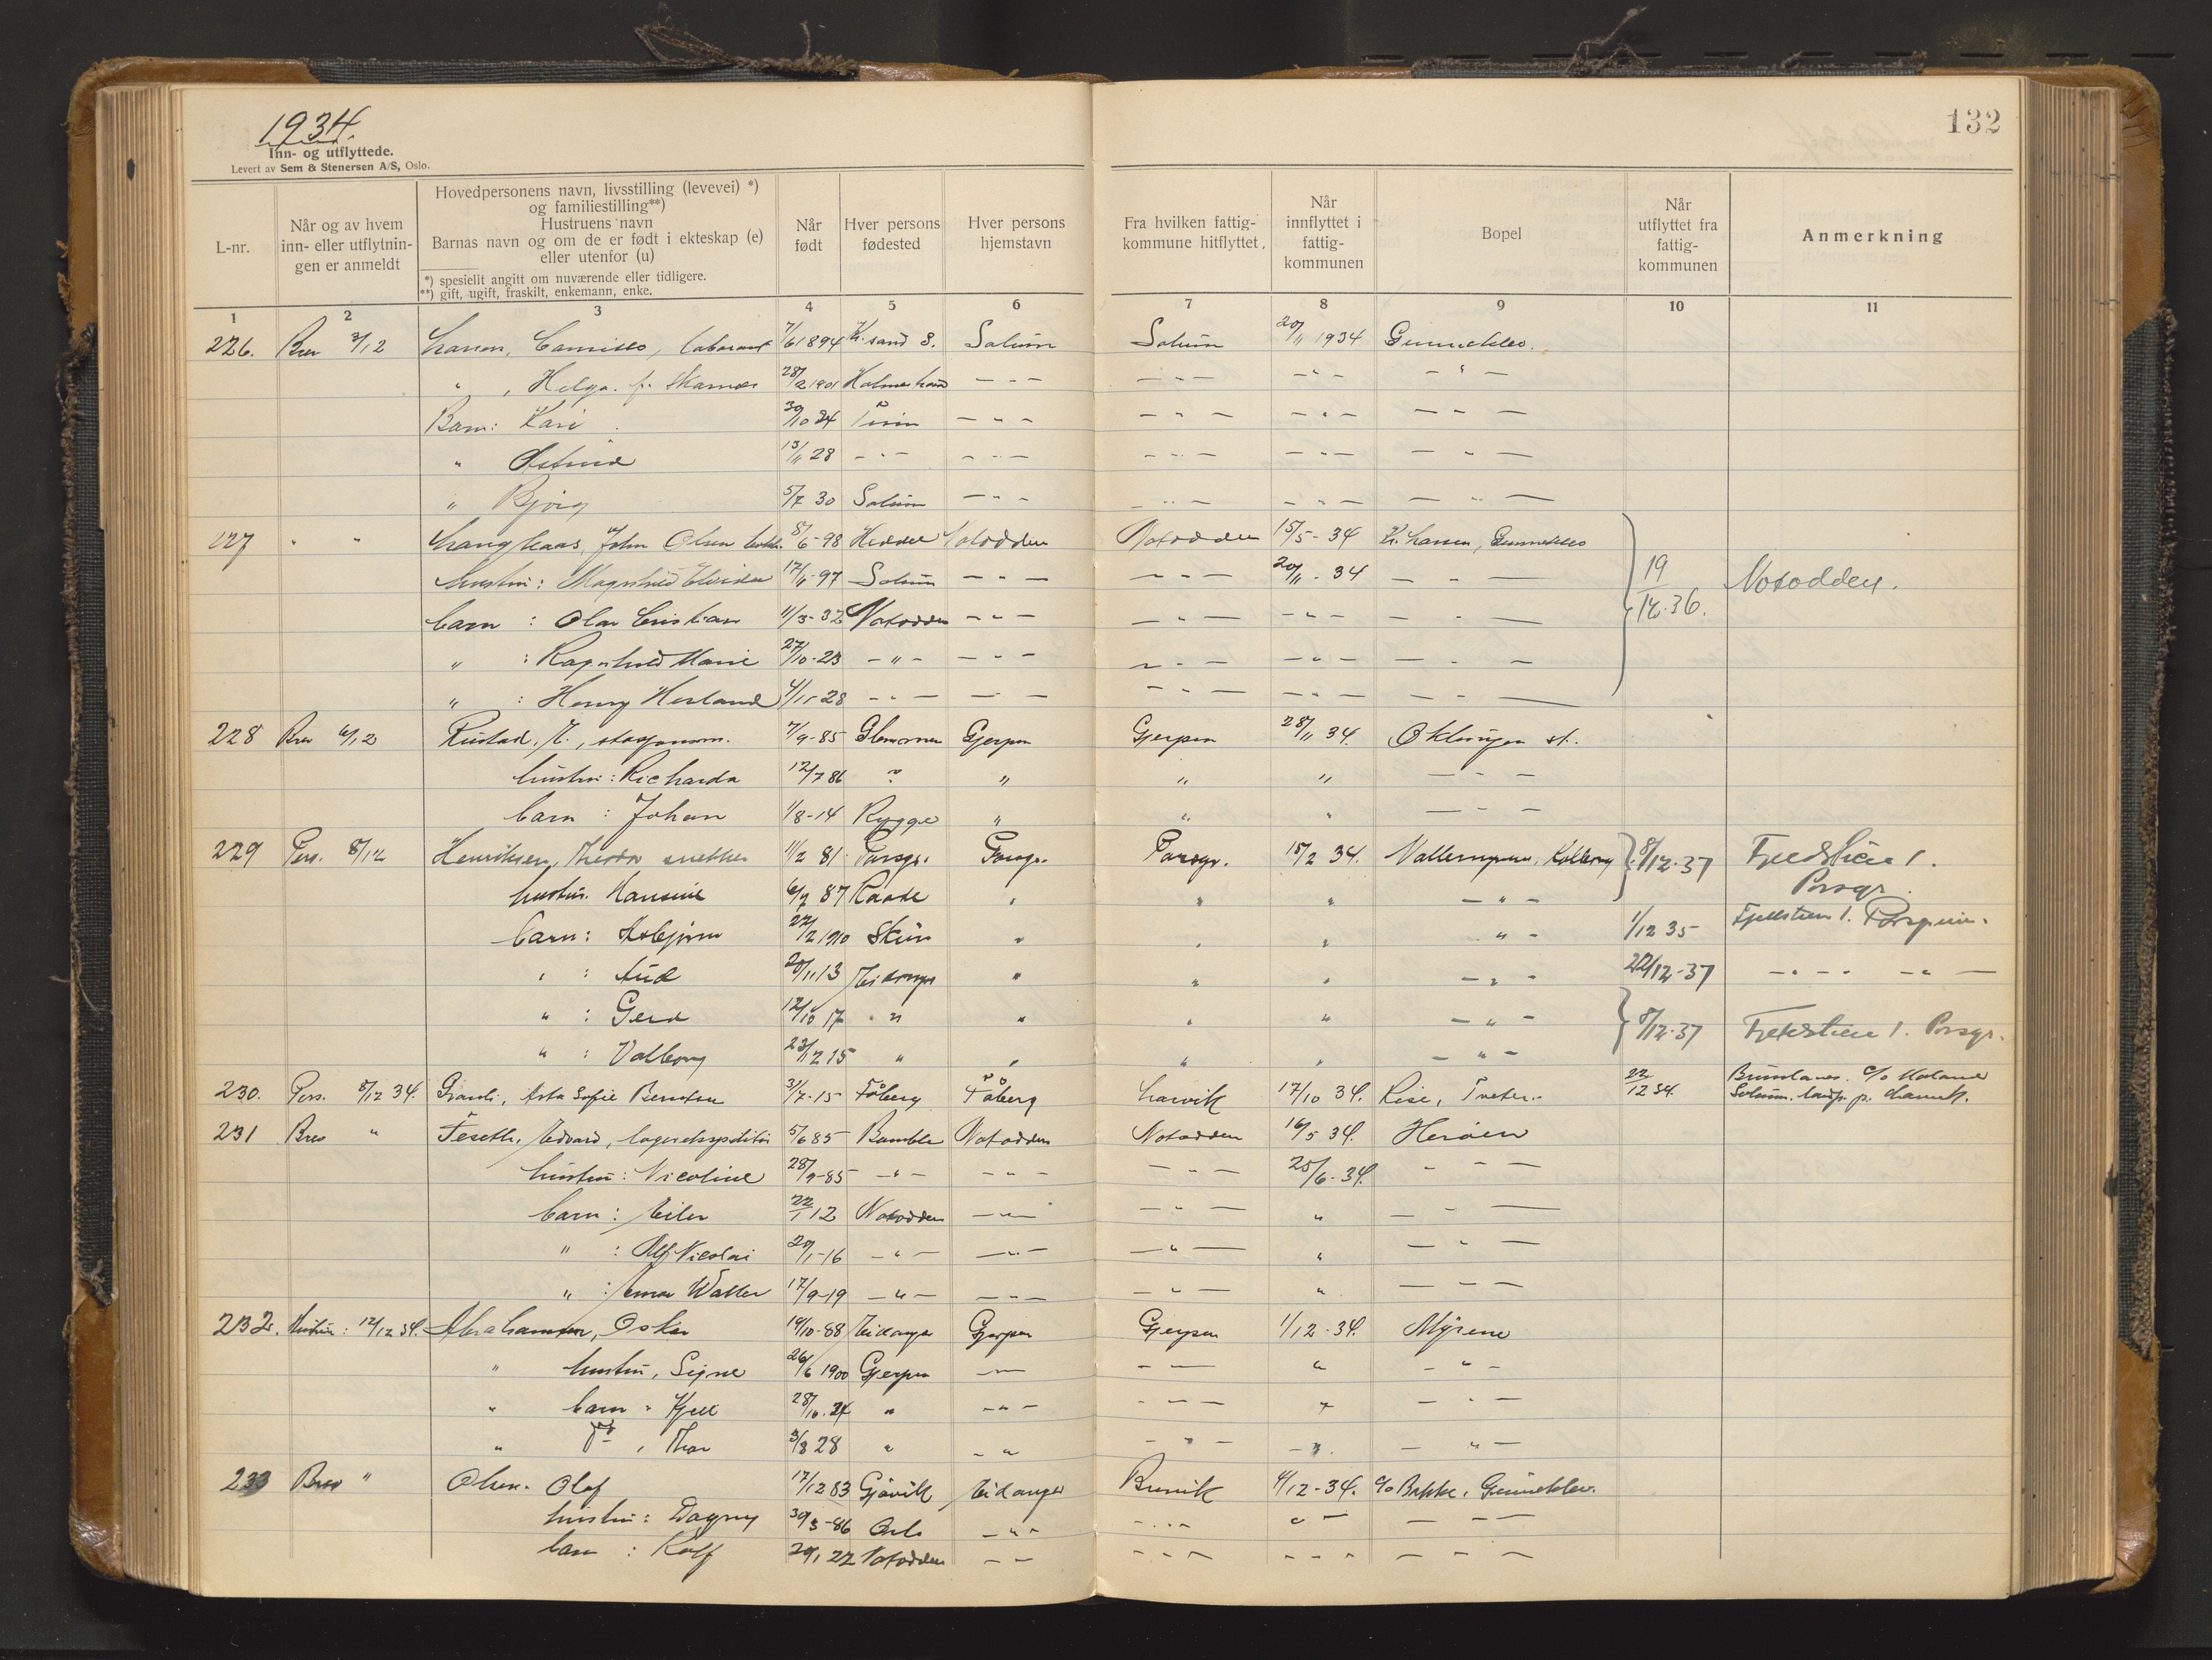 1934.
132
Inn- og utflyttede.
Levert av Sem & Stenersen A/S, Oslo.
L-nr.
Når og av hvem inn- eller utflytnin-gen er anmeldt
Hovedpersonens navn, livsstilling (levevei) *)
og familiestilling**)
Hustruens navn
Barnas navn og om de er født i ekteskap (e)
eller utenfor (u)
*) spesielt angitt om nuværende eller tidligere.
**) gift, ugift, fraskilt, enkemann, enke.
Når født
Hver persons fødested
Hver persons hjemstavn
Fra hvilken fattig-kommune hitflyttet.
Når innflyttet i fattig-kommunen
Bopel
Når utflyttet fra fattig-kommunen
Anmerkning
1 2 3 4 5 6 7 8 9 10 11
226. Brev 3/12 Larsen, Camillo, laborant 7/6 1894 Kr.sand S. Solum Solum 20/11 1934 Gunneklev.
" , Helga f. Skarnes 28/2 1901 Holmestrand - " - - " - - " - - " -
Barn: Kari 30/10 24 - " - - " - - " - - " -
" Astrid 13/11 28 - " - - " - - " - - " - - " -
" Bjørg 5/7 30 Solum - " - - " - - " - - " -
227 " " Langkaas, John Olsen 8/6-98 Heddal Notodden Notodden 15/5-34 Kr. Larsen, Gunneklev
hustru: Magnhild Elvida 17/11-97 Solum - " - - " - 20/11-34 - " - 19/12-36. Notodden.
barn : Olav Cristian 11/3-32 Notodden - " - - " - - " - - " -
" : Ragnhild Marie 27/10-23 - " - - " - - " - - " - - " -
" : Henry Herland 4/11-28 - " - - " - - " - - " - - " -
228 Brev 6/12 Rustad, K., stasjonsm. 7/9-85 Glemmen Gjerpen Gjerpen 28/11 34. Oklungen st.
hustru: Richarda 12/7 86 " " " " - " -
barn : Johan 1/8-14 Rygge " " " - " -
229 Pers. 8/12 Henriksen, Theodor snekker 11/2 81. Porsgr. Porsgr. Porsgr. 15/2 34. Vallermyrene, 8/12-37 Fjeldstien 1.
Porsgr.
hustru. Hansine 6/7 87 Raade " " " - " -
barn: Asbjørn 22/2 1910 Skien " " " " - 1/12 35 Fjellstien 1. Porsgrunn.
" : Aud 20/11 13 Eidanger " " " - " - 22/12-37 - " - - " -
" : Gerd 12/10 17 " " " " " - " - 8/12-37 Fjeldstien 1. Porsgr.
" : Valborg 23/12 15 " " " " - " -
230. Pers. 8/12 34. Granli, Asta Sofie Berntsen 31/7-15 Fåberg Fåberg Larvik 17/10 34. Rise, Tveter. 22/12 34. Brunlanes. c/o
231 Brev " Feseth, Edvard, lagerekspeditør 5/6 85 Bamble Notodden Notodden 16/5 34. Herøen
hustru: Nicoline 28/9-85 - " - - " - - " - 25/6-34. - " -
barn: Eiler 22/1 12 Notodden - " - - " - " - " -
" : Alf Nicolai 20/1-16 - " - - " - - " - " - " -
" : Einar Walter 17/9-19 - " - - " - - " - " - " -
232. Hustru: 12/12 34. Abrahamsen, Oskar 19/10-88 Eidanger Gjerpen Gjerpen 1/12-34. Myrene
" hustru, Signe 26/6 1900 Gjerpen - " - - " - " - " -
" barn " Kjell 28/10-24 " - " - - " - " - " -
" do , Thor 3/8 28 " - " - " - - " - - " -
233 Brev " Olsen. Olaf 17/12 83 Gjøvik Eidanger Brevik 4/12-34. c/o Bakke, Gunneklev.
hustru: Dagny 30/3-86 Oslo - " - - " - " - - " -
barn : Rolf 29/1 22 Notodden - " - - " - - " - - " -